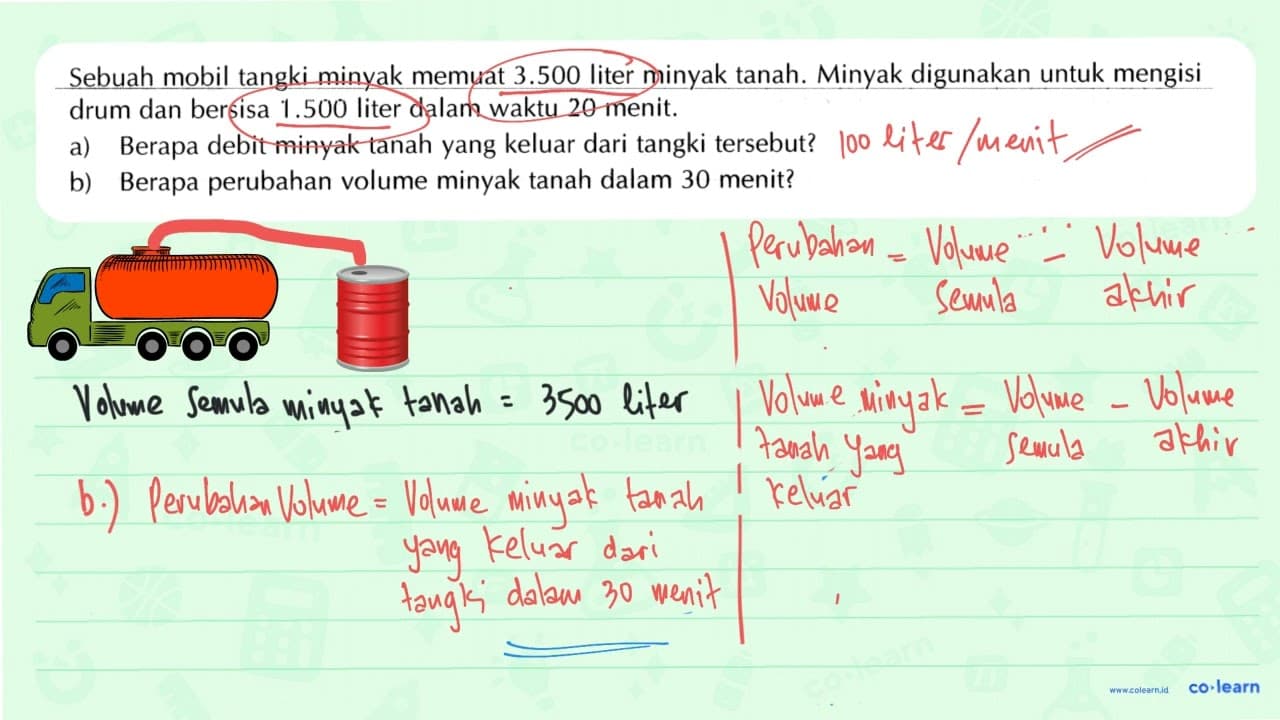 Sebuah mobil tangki minyak memuat 3.500 liter minyak tanah. Minyak digunakan untuk mengisi
drum dan bersisa 1.500 liter dalam waktu 20 menit.
a) Berapa debit minyak tanah yang keluar dari tangki tersebut? 100 liter/menit
b) Berapa perubahan volume minyak tanah dalam 30 menit?
Perubahan = Volume - Volume
Volume semula akhir
Volume semula minyak tanah = 3500 liter
Volume minyak = Volume - Volume
tanah yang semula akhir
keluar
b.) Perubahan Volume = Volume minyak tanah
yang keluar dari
tangki dalam 30 menit
co·learn
co·learn
www.colearn.id co·learn